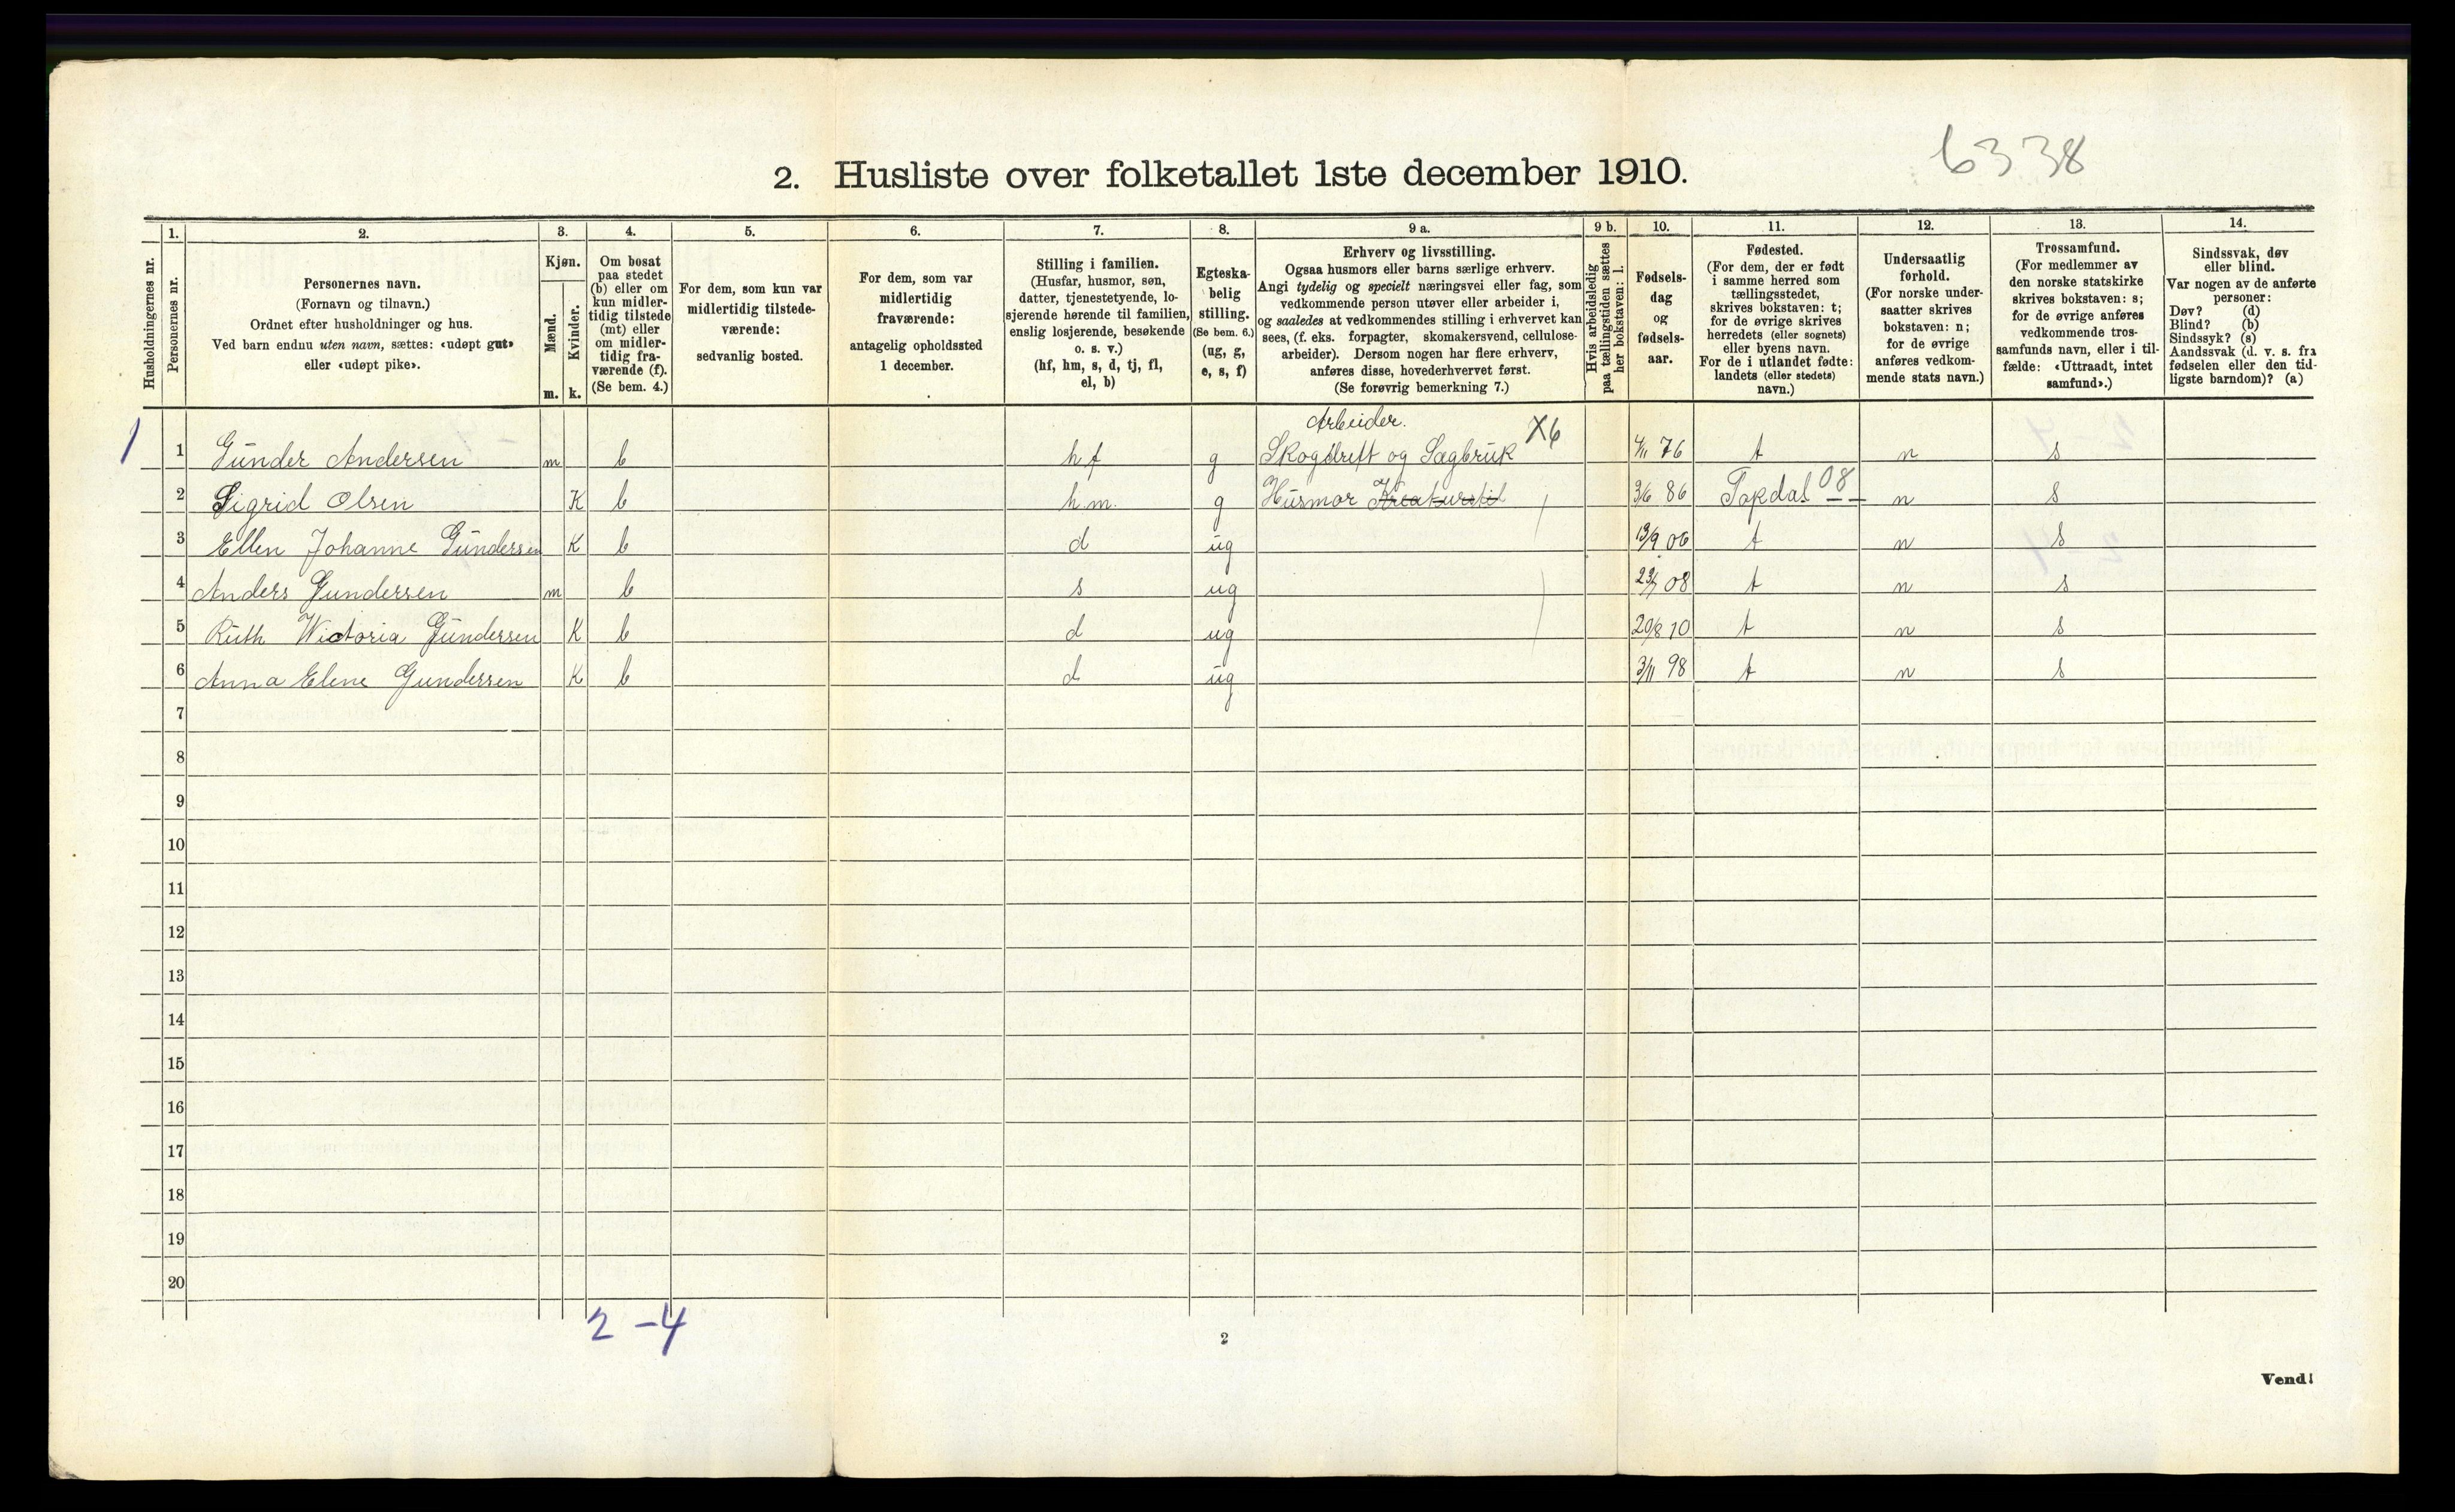 6338
2. Husliste over folketallet 1ste december 1910.
Husholdningernes nr.
1.
Personernes nr.
2.
Personernes navn.
(Fornavn og tilnavn.)
Ordnet efter husholdninger og hus.
Ved barn endnu uten navn, sættes: «udøpt gut»
eller «udøpt pike».
3.
Kjøn.
Mænd.
Kvinder.
m. k.
4.
Om bosat
paa stedet
(b) eller om
kun midler-
tidig tilstede
(mt) eller
om midler-
tidig fra-
værende (f).
(Se bem. 4.)
5.
For dem, som kun var
midlertidig tilstede-
værende:
sedvanlig bosted.
6.
For dem, som var
midlertidig
fraværende:
antagelig opholdssted
1 december.
7.
Stilling i familien.
(Husfar, husmor, søn,
datter, tjenestetyende, lo-
sjerende hørende til familien,
enslig losjerende, besøkende
o. s. v.)
(hf, hm, s, d, tj, fl,
el, b)
8.
Egteska-
belig
stilling.
(Se bem. 6.)
(ug, g,
e, s, f)
9 a.
Erhverv og livsstilling.
Ogsaa husmors eller barns særlige erhverv.
Angi tydelig og specielt næringsvei eller fag, som
vedkommende person utøver eller arbeider i,
og saaledes at vedkommendes stilling i erhvervet kan
sees, (f. eks. forpagter, skomakersvend, cellulose-
arbeider). Dersom nogen har flere erhverv,
anføres disse, hovederhvervet først.
(Se forøvrig bemerkning 7.)
9 b.
Hvis arbeidsledig
paa tællingstiden sættes
her bokstaven: l.
10.
Fødsels-
dag
og
fødsels-
aar.
11.
Fødested.
(For dem, der er født
i samme herred som
tællingsstedet,
skrives bokstaven: t;
for de øvrige skrives
herredets (eller sognets)
eller byens navn.
For de i utlandet fødte:
landets (eller stedets)
navn.)
12.
Undersaatlig
forhold.
(For norske under-
saatter skrives
bokstaven: n;
for de øvrige
anføres vedkom-
mende stats navn.)
13.
Trossamfund.
(For medlemmer av
den norske statskirke
skrives bokstaven: s;
for de øvrige anføres
vedkommende tros-
samfunds navn, eller i til-
fælde: «Uttraadt, intet
samfund».)
14.
Sindssvak, døv
eller blind.
Var nogen av de anførte
personer:
Døv? (d)
Blind? (b)
Sindssyk? (s)
Aandssvak (d. v. s. fra
fødselen eller den tid-
ligste barndom)? (a)
Arbeider. X6
1 1 Gunder Andersen m b hf g Skogdrift og Sagbruk 4/11 76 t n s
2 Sigrid Olsen K b h.m. g Husmor Kreaturstil 3/6 86 Topdal 08 n s
3 Ellen Johanne Gundersen K b d ug 13/9 06 t n s
4 Anders Gundersen m b s ug 08 t n s
5 Ruth Wictoria Gundersen K b d ug 20/8 10 t n s
6 Anna Elene Gundersen K b d ug 3/11 98 t n s
7
8
9
10
11
12
13
14
15
16
17
18
19
20
2 – 4
2
Vend!